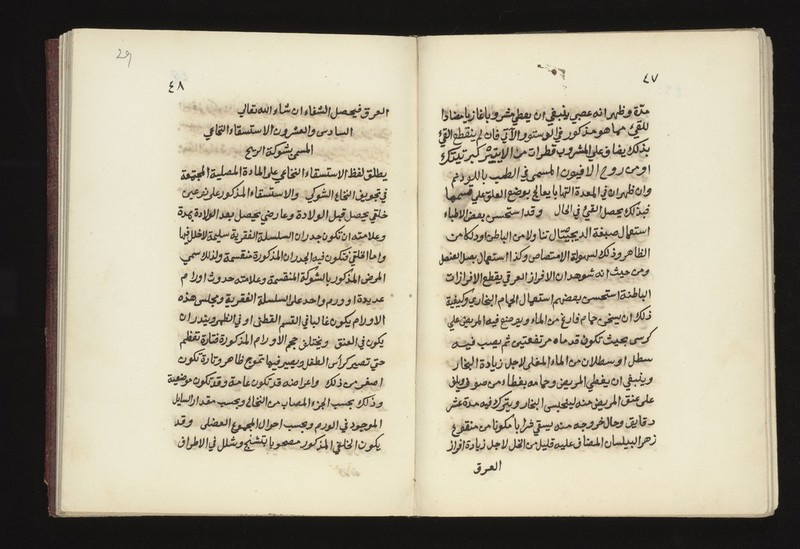 ٤٧
مدة وظهر انه عصبي ينبغي ان يعطي مشروبا غازيا مضادا
للقئ مما هو مذكور في الدستور الآتي فان لم ينقطع القئ
بذلك يضاف علي المشروب قطرات من الايتير كبريتيك
او من روح الافيون المسمي في الطب باللودنم
وان ظهر ان في المعدة التهابا يعالج بوضع العلق علي قسمها
فبذلك يحصل القئ في الحال وقد استحسن بعض الاطباء
استعمال صبغة الديجيتال تناولا من الباطن او دلكا من
الظاهر وذلك لسهولة الامتصاص وكذا استعمال بصل العنصل
ومن حيث انه شوهد ان الافراز العرقي يقطع الافرازات
الباطنة استحسن بعضهم استعمال الحمام البخاري وكيفية
ذلك ان يسخن حمام فارغ من الماء ويوضع فيه المريض علي
كرسي بحيث تكون قدماه مرتفعتين ثم يصب فيه
سطل او سطلان من الماء المغلي لاجل زيادة البخار
وينبغي ان يغطي المريض وحمامه بغطاء من صوف ويلف
علي عنق المريض منه لينحبس البخار ويترك فيه مدة عشر
دقايق وحال خروجه منه يسقي شرابا مكونا من منقوع
زهر البيلسان المضاف عليه قليل من الخل لاجل زيادة افراز
العرق
29
٤٨
العرق فيحصل الشفاء ان شاء الله تعالي
السادس والعشرون الاستسقاء النخاعي
المسمي بشوكة الريح
يطلق لفظ الاستسقاء النخاعي علي المادة المصلية المجتمعة
في تجويف النخاع الشوكي والاستسقاء المذكور علي نوعين
خلقي يحصل قبل الولادة وعارضي يحصل بعد الولادة بمدة
وعلامته ان تكون جدران السلسلة الفقرية سليمة لاخلل فيها
واما الخلقي فتكون فيه الجدران المذكورة منقسمة ولذلك سمي
المرض المذكور بالشوكة المنقسمة وعلامته حدوث اورام
عديدة او ورم واحد علي السلسلة الفقرية ومجلس هذه
الاورام يكون غالبا في القسم القطني او في الظهر ويندر ان
يكون في العنق ويختلف حجم الاورام المذكورة فتارة تعظم
حتي تصير كراس الطفل ويصير فيها تموج ظاهر وتارة تكون
اصغر من ذلك واعراضه قد تكون عامة وقد تكون موضعية
وذلك بحسب الجزء المصاب من النخاع وبحسب مقدار السايل
الموجود في الورم وبحسب احوال المجموع العضلي وقد
يكون الخلقي المذكور مصحوبا بتشنج وشلل في الاطراف